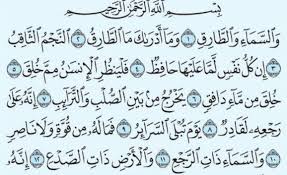 بِسْمِ ٱللَّهِ ٱلرَّحْمَٰنِ ٱلرَّحِيمِ
وَٱلسَّمَآءِ وَٱلطَّارِقِ ١ وَمَآ أَدْرَىٰكَ مَا ٱلطَّارِقُ ٢ ٱلنَّجْمُ ٱلثَّاقِبُ
٣ إِن كُلُّ نَفْسٍ لَّمَّا عَلَيْهَا حَافِظٌ ٤ فَلْيَنظُرِ ٱلْإِنسَٰنُ مِمَّ خُلِقَ ٥
خُلِقَ مِن مَّآءٍ دَافِقٍ ٦ يَخْرُجُ مِنۢ بَيْنِ ٱلصُّلْبِ وَٱلتَّرَآئِبِ ٧ إِنَّهُۥ عَلَىٰ
رَجْعِهِۦ لَقَادِرٌ ٨ يَوْمَ تُبْلَى ٱلسَّرَآئِرُ ٩ فَمَا لَهُۥ مِن قُوَّةٍ وَلَا نَاصِرٍ
١٠ وَٱلسَّمَآءِ ذَاتِ ٱلرَّجْعِ ١١ وَٱلْأَرْضِ ذَاتِ ٱلصَّدْعِ ١٢ إِنَّهُۥ